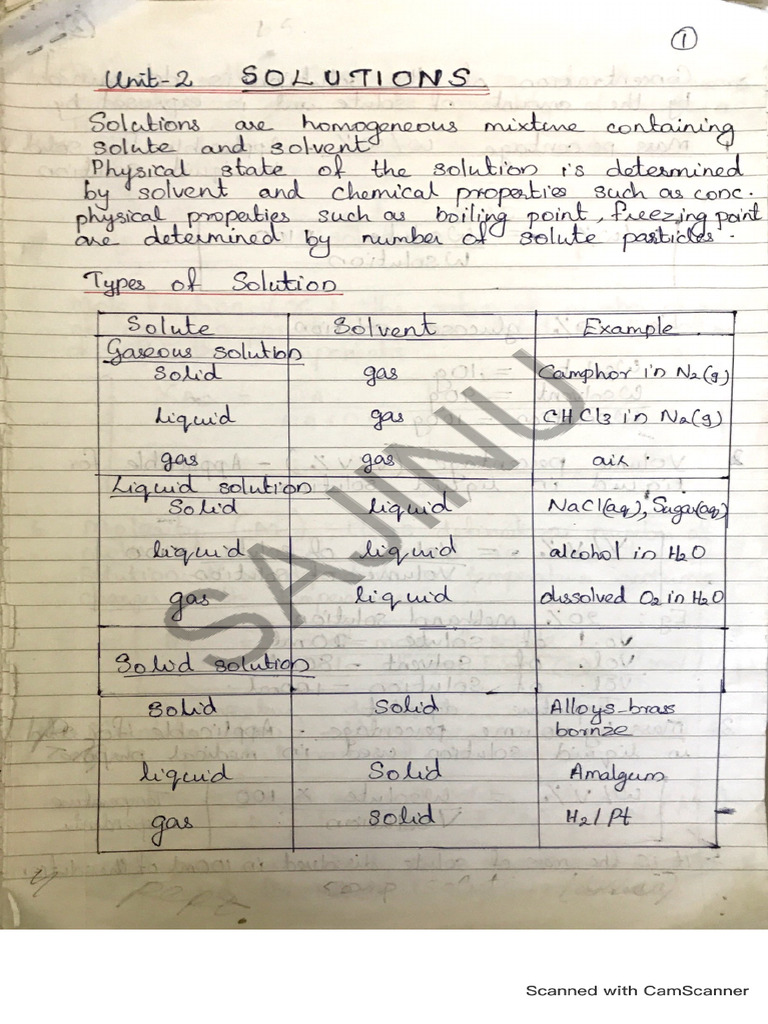 1
Unit-2 SOLUTIONS
Solutions are homogeneous mixture containing
solute and solvent
Physical state of the solution is determined
by solvent and chemical properties such as conc.
physical properties such as boiling point, freezing point
are determined by number of solute particles.
Types of Solution
Solute Solvent Example
Gaseous solution
Solid gas Camphor in N2(g)
liquid gas CHCl3 in N2(g)
gas gas air.
Liquid solution
Solid liquid NaCl(aq), Sugar(aq)
liquid liquid alcohol in H2O
gas liquid dissolved O2 in H2O
Solid solution
Solid Solid Alloys-brass
bornze
liquid Solid Amalgum
gas Solid H2/Pt
SAJINU
Scanned with CamScanner